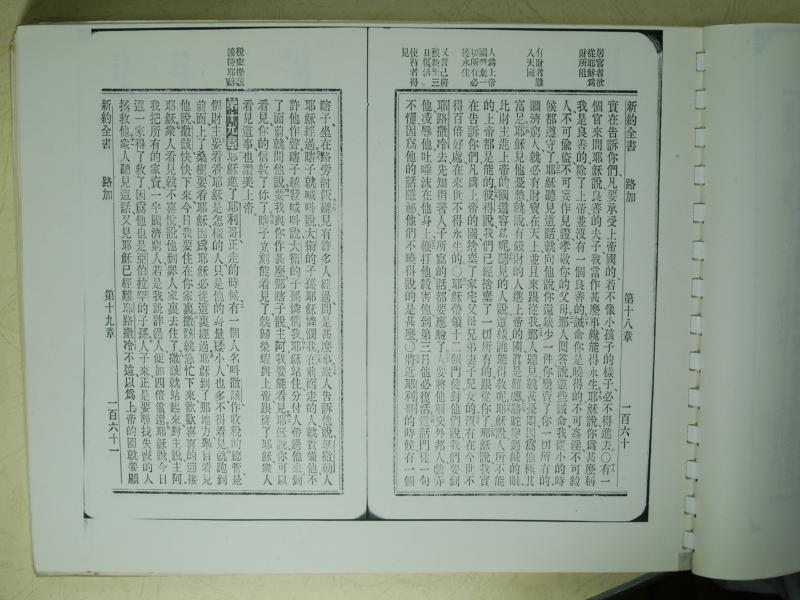 居官者欲
從耶穌爲
財所阻
有財者難
入天國
人爲上帝
國𢬵棄一
切所有必
獲永生
又言已將
被殺至三
日復活
使瞽者得
見
新約全書 路加 第十八章 一百六十
實在告訴你們凡要承受上帝國的若不像小孩子的樣子必不得進去○有一
個官來問耶穌說良善的夫子我當作甚麽事纔能得永生耶穌說你爲甚麽稱
我是良善的除了上帝並沒有一個良善的誡命你是曉得的不可姦淫不可殺
人不可偷盜不可妄作見證孝敬你的父母那人回答說這些誡命我從小的時
候都遵守了耶穌聽見這話就向他說你還缺少一件你變賣了你一切所有的
賙濟窮人就必有財寶在天上並且來跟從我那人聽見就甚憂悶因爲他極其
富足耶穌見他憂愁就說有錢財的人進上帝的國眞是難應駱駝穿過鍼的眼
比財主進上帝的國還容易呢聽見的人說這樣誰能得救呢耶穌說人所不能
的上帝都是能的彼得說我們已經捨棄了一切所有的跟從你了耶穌說我實
在告訴你們凡爲上帝的國捨棄了家宅父母兄弟妻子兒女的沒有在今世不
得百倍好處在來世不得永生的○耶穌帶領十二個門徒對他們說我們要到
耶路撒冷去先知指著人子所寫的話都要應驗了人要將他解交外邦人戲弄
他凌辱他吐唾沫在他身上鞭打他殺害他到第三日他必復活這話門徒一句
不懂因爲他的話隱祕他們不曉得說的是甚麽○將近耶利哥的時候有一個
稅吏撒該
接待耶穌
瞎子坐在路旁討飯聽見有許多人經過問是甚麽事衆人告訴他說拿撒勒人
耶穌經過瞎子就喊呌說大衛的子孫耶穌憐憫我在前面走的人就責備他不
許他作聲瞎子越發喊呌說大衛的子孫憐憫我耶穌站住分付人帶過他來到
了面前就問他說要我與你作甚麽瞎子說主阿我要能看見耶穌說你可以
看見你的信救了你了瞎子立刻能看見了就歸榮耀與上帝跟從了耶穌衆人
看見這事也讚美上帝
第十九章耶穌進了耶利哥正走的時候有一個人名呌撒該作收稅的總管是
個財主要看看耶穌是怎樣的人只是他的身量矮小人也多不得看見就跑到
前面上了桑樹要看耶穌因爲耶穌必從這裏經過耶穌到了那地方舉目看見
他說撒該快快下來今日我要住在你家裏撒該就急忙下來歡歡喜喜的迎接
耶穌衆人看見就不喜悅說他到罪人家裏去住了撒該就站起來對主說主阿
我把所有的家資一半賙濟窮人若是我訛詐過人便加四倍償還耶穌說今日
這一家得了救了因爲他也是亞伯拉罕的子孫人子來正是要尋找失喪的人
拯救他衆人聽見這話又見耶穌已經離耶路撒冷不遠以爲上帝的國就要顯
新約全書 路加 第十九章 一百六十一